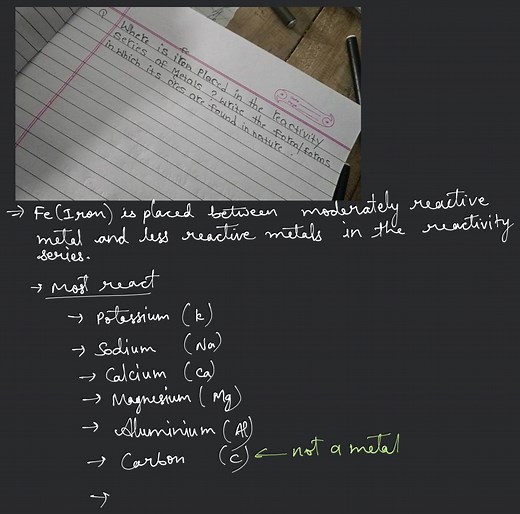 Q Where is iron placed in the reactivity
Fe
series of metals? Write the form/forms
in which its ores are found in nature.
→ Fe(Iron) is placed between moderately reactive
metal and less reactive metals in the reactivity
series.
→ Most react
→ Potassium (k)
→ Sodium (Na)
→ Calcium (Ca)
→ Magnesium (Mg)
→ Aluminium (Al)
→ Carbon (C) ← not a metal
→